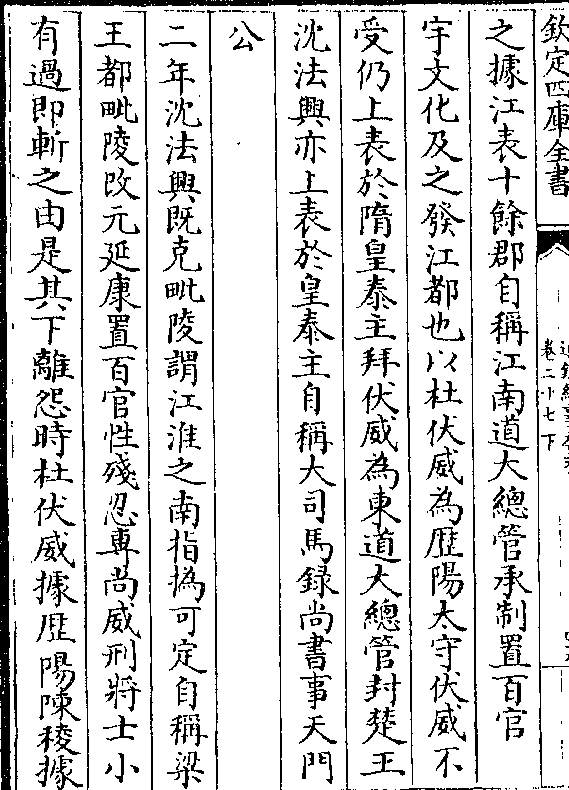 欽定四庫全書
卷二十七下
之據江表十餘郡自稱江南道大總管承制置百官
宇文化及之發江都也以杜伏威為歴陽太守伏威不
受仍上表於隋皇泰主拜伏威為東道大總管封楚王
沈法興亦上表於皇泰主自稱大司馬録尚書事天門
公
二年沈法興既克毗陵謂江淮之南指撝可定自稱梁
王都毗陵改元延康置百官性殘忍専尚威刑將士小
有過即斬之由是其下離怨時杜伏威據歴陽陳稜據